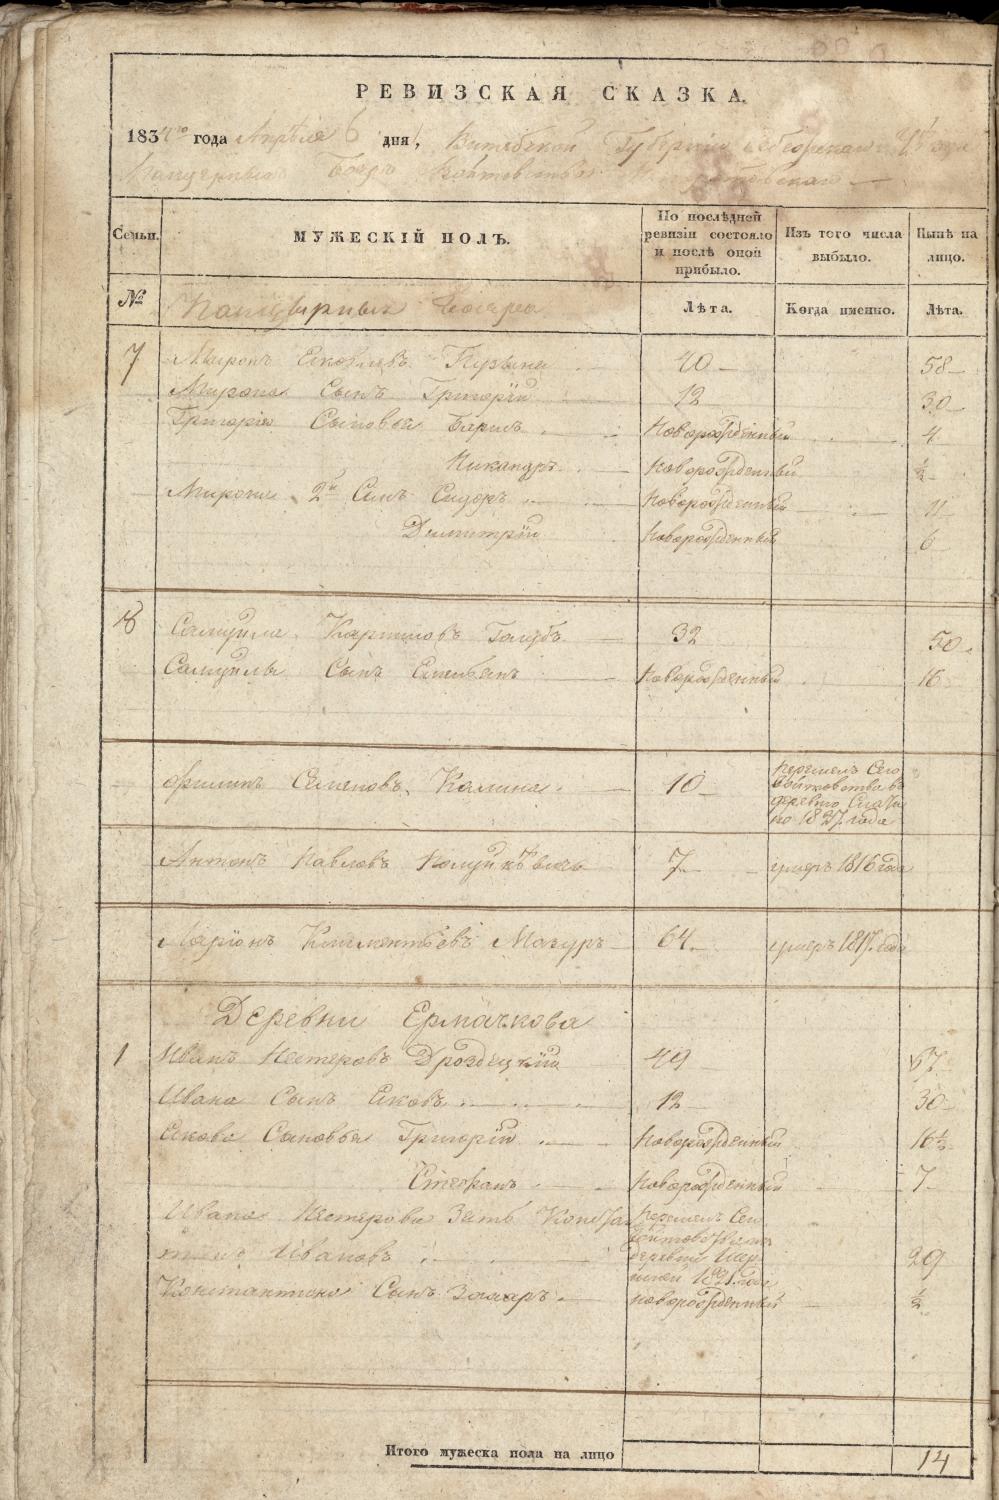 РЕВИЗСКАЯ СКАЗКА.
1834го года Апрѣля 6 дня, Витебской Губерніи Себежскаго
Панцерныхъ Бояръ Войтовства
Семьи.
МУЖЕСКІЙ ПОЛЪ.
По послѣдней ревизіи состояло и послѣ оной прибыло.
Изъ того числа выбыло.
Нынѣ на лицо.
№
Панцырныхъ Бояръ
Лѣта.
Когда именно.
Лѣта.
7 Миронъ Яковлевъ 40 58
Мирона Сынъ Григорій 12 30
Григорія Сыновья Новорожденный 4
Никандръ Новорожденный ½
Мирона 2й Сынъ Сидоръ Новорожденный 11
Димитрій Новорожденный 6
18 Самуйла Голубъ 32 50
Самуйлы Сынъ Степанъ Новорожденный 16
Филипъ Семеновъ Калина 10 деревню 1827 года
Антонъ Павловъ 7 умеръ 1816 года
Ларіонъ Климентьевъ Мазуръ 64 умеръ 1817 года
Деревни Ермачкова
1 Иванъ Нестеровъ Дроздецкій 49 67
Ивана Сынъ Яковъ 12 30
Якова Сыновья Григорій Новорожденный 16½
Стефанъ Новорожденный 7
Ивана Нестерова Зять Констан
тинъ Ивановъ деревни 29
Константина Сынъ Захаръ Новорожденный ½
Итого мужеска пола на лицо 14